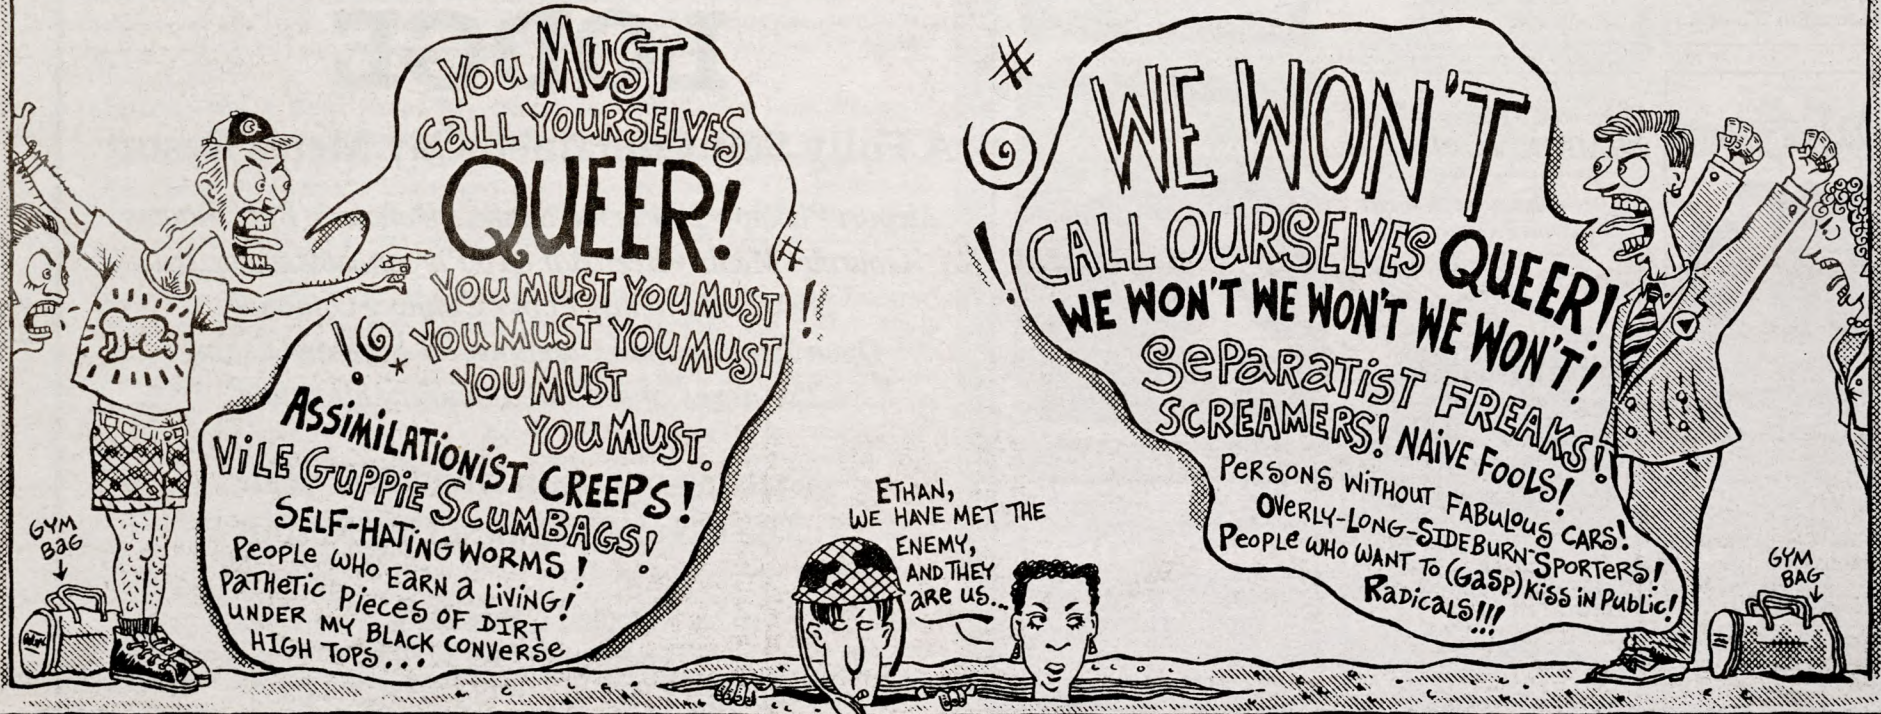 YOU MUST
CALL YOURSELVES
QUEER!
YOU MUST YOU MUST
YOU MUST YOU MUST
YOU MUST
YOU MUST.
ASSIMILATIONIST CREEPS!
VILE GUPPIE SCUMBAGS!
SELF-HATING WORMS!
PEOPLE WHO EARN A LIVING!
PATHETIC PIECES OF DIRT
UNDER MY BLACK CONVERSE
HIGH TOPS...
GYM
BAG
ETHAN,
WE HAVE MET THE
ENEMY,
AND THEY
ARE US...
WE WON'T
CALL OURSELVES QUEER!
WE WON'T WE WON'T WE WON'T!
SEPARATIST FREAKS!
SCREAMERS! NAIVE FOOLS!
PERSONS WITHOUT FABULOUS CARS!
OVERLY-LONG-SIDEBURN-SPORTERS!
PEOPLE WHO WANT TO (GASP) KISS IN PUBLIC!
RADICALS!!!
GYM
BAG